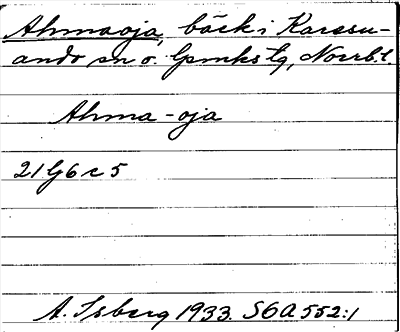 Ahmaoja, bäck i Karesu-
ando sn o. lpmkstg, Norrb. l.
Ahma-oja
21 G 6 c 5
A. Isberg 1933. SGA 552:1